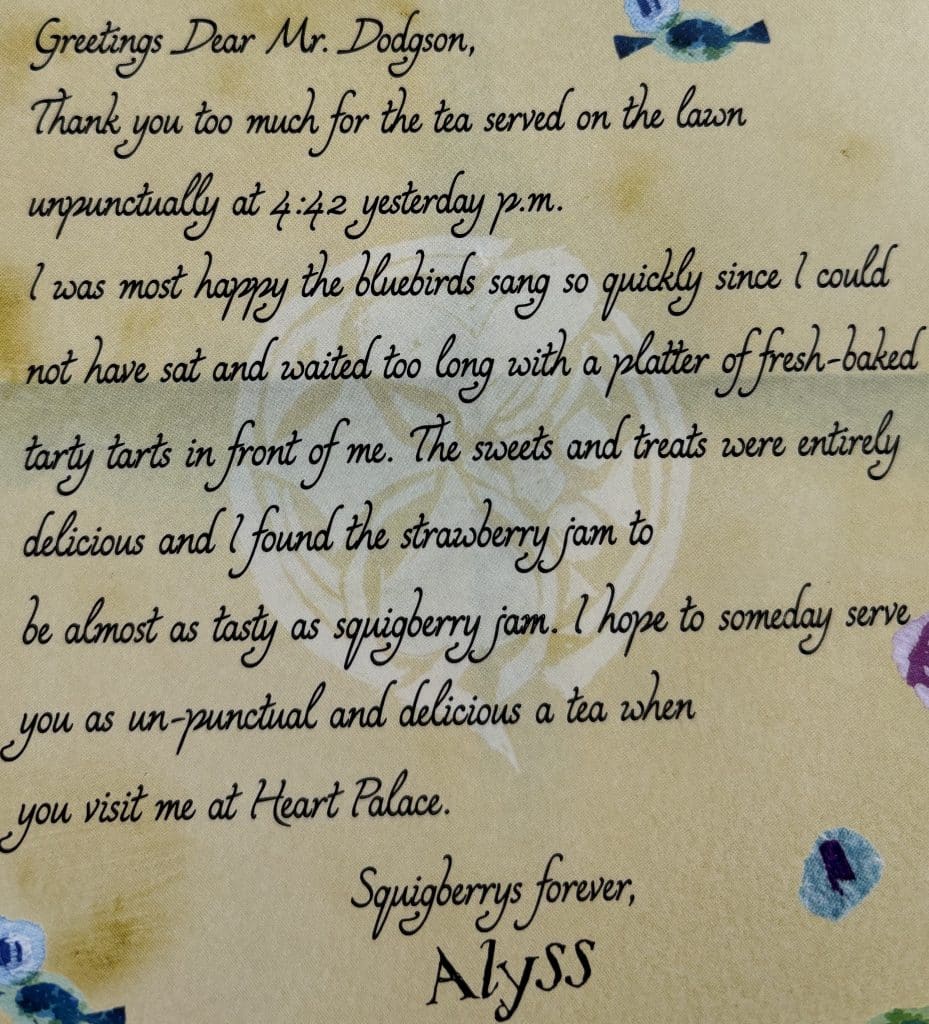 Greetings Dear Mr. Dodgson,
Thank you too much for the tea served on the lawn
unpunctually at 4:42 yesterday p.m.
I was most happy the bluebirds sang so quickly since I could
not have sat and waited too long with a platter of fresh-baked
tarty tarts in front of me. The sweets and treats were entirely
delicious and I found the strawberry jam to
be almost as tasty as squigberry jam. I hope to someday serve
you as un-punctual and delicious a tea when
you visit me at Heart Palace.
Squigberrys forever,
Alyss